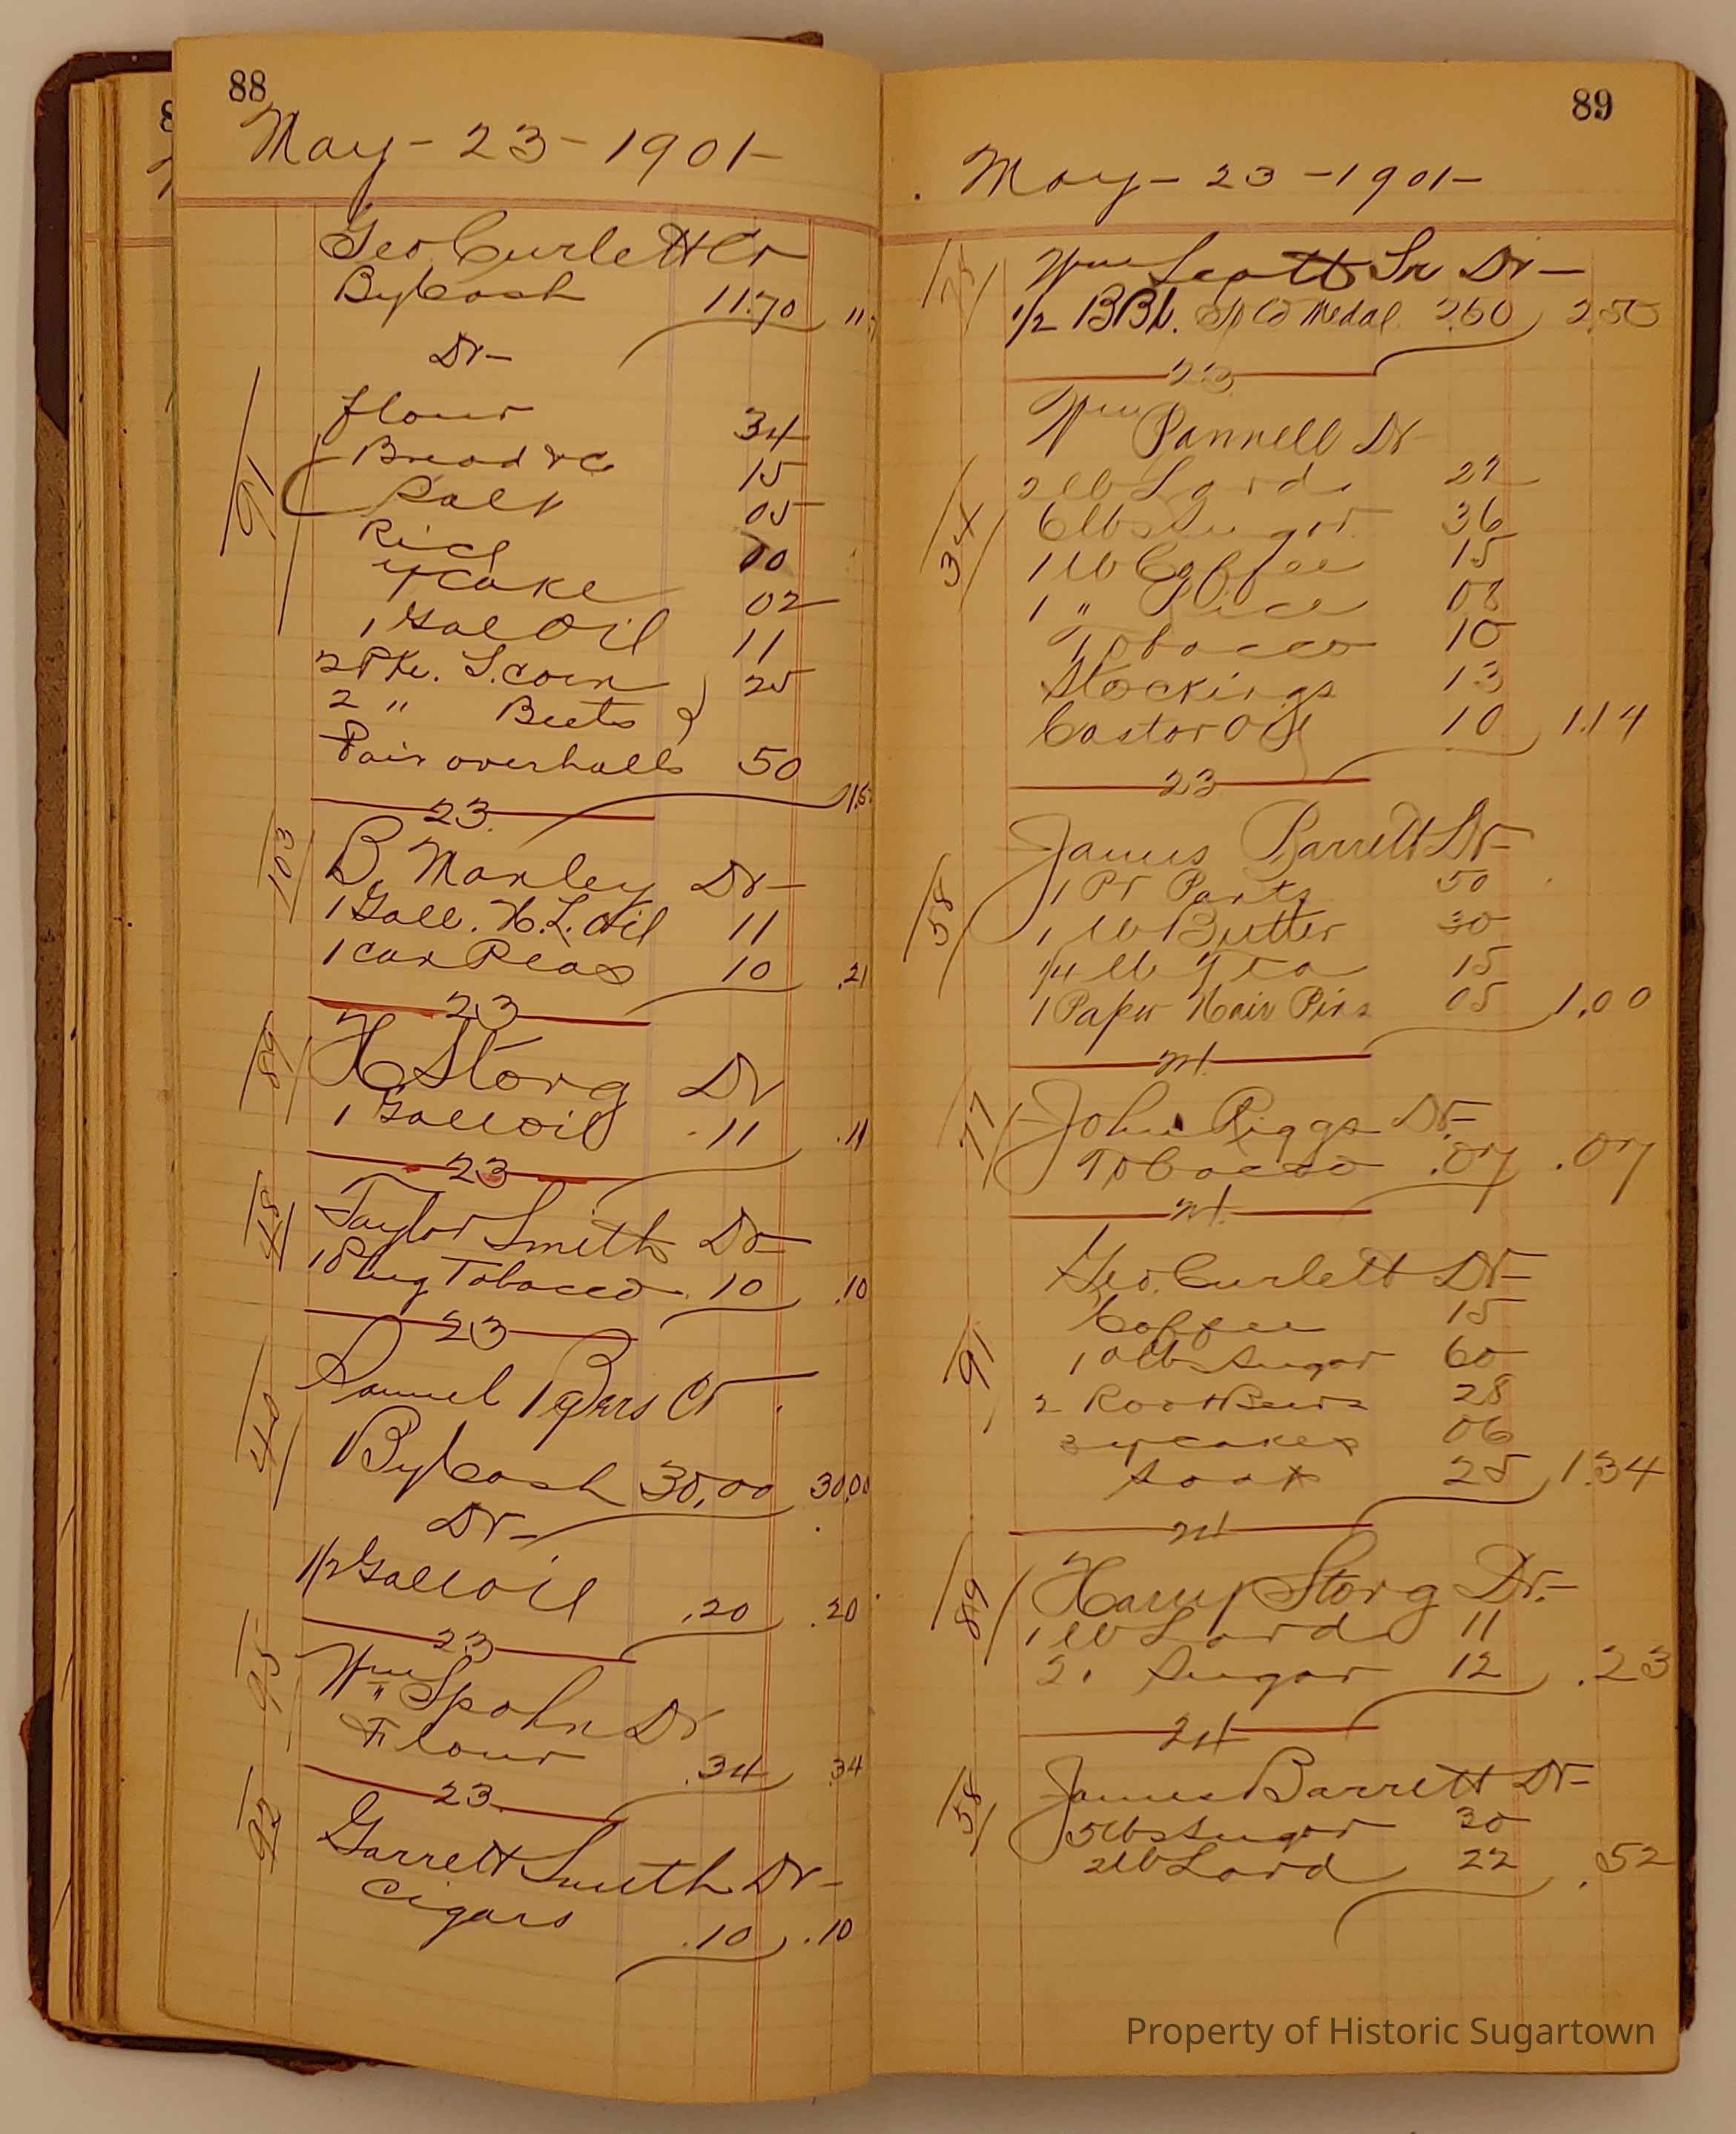 88
May - 23 - 1901 -
Geo. Curlett Cr
By Cash 11.70
Dr -
91
flour 34
Bread &c 15
Salt 05
Rice 10
Y Cake 02
1 Gal Oil 11
2 Pks. S. corn 25
2 " Beets
Pair overhalls 50
23
103
B. Manley Dr -
1 Gall. H. L. Oil 11
1 can Peas 10 .21
23
89
H Storg Dr
1 Gall Oil .11 .11
23
48
Taylor Smith Dr -
1 Plug Tobacco .10 .10
23
40
Samuel Cr
By Cash 30.00 30.00
Dr -
1/2 Gall Oil .20 .20
23
95
Wm Spohn Dr
Flour .34 .34
23
92
Garrett Smith Dr -
Cigars .10 .10
89
May - 23 - 1901 -
Wm Scott Sr Dr -
1/2 BBl. Medal 2.50 2.50
23
Wm Pannell Dr
34
2 lb Lard 22
6 lbs Sugar 36
1 lb Coffee 15
1 " Rice 08
Tobacco 10
Stockings 13
Castor Oil 10 1.14
23
58
James Barrett Dr -
1 Pr Pants 50
1 lb Butter 30
1/4 lb Tea 15
1 Paper Hair Pins 05 1.00
24
77
John Riggs Dr -
Tobacco .07 .07
24
Geo. Curlett Dr -
91
Coffee 15
10 lbs Sugar 60
2 Root Beers 28
3 y cakes 06
Soap 25 1.34
24
89
Harry Storg Dr. -
1 lb Lard 11
2 " Sugar 12 .23
24
58
James Barrett Dr -
5 lbs Sugar 30
2 lb Lard 22 .52
Property of Historic Sugartown